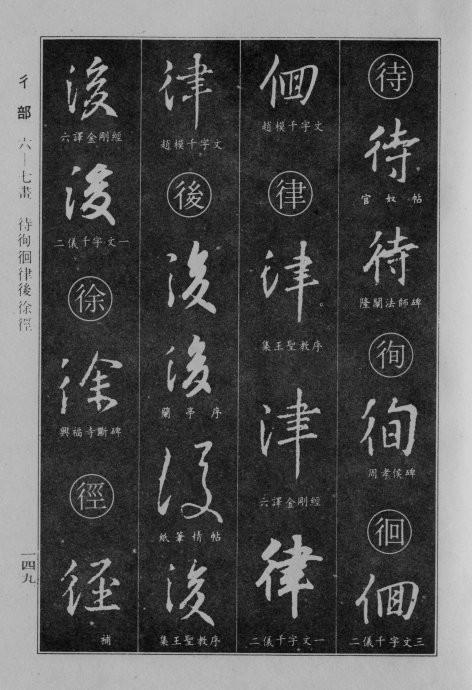 待
待
官奴帖
待
隆闡法師碑
徇
徇
周孝侯碑
徊
徊
二儀千字文三
徊
趙模千字文
律
律
集王聖教序
律
六譯金剛經
律
二儀千字文一
律
趙模千字文
後
後
後
蘭亭序
後
紙筆精帖
後
集王聖教序
後
六譯金剛經
後
二儀千字文一
徐
徐
興福寺斷碑
徑
徑
補
彳部 六—七畫 待徇徊律後徐徑
一四九